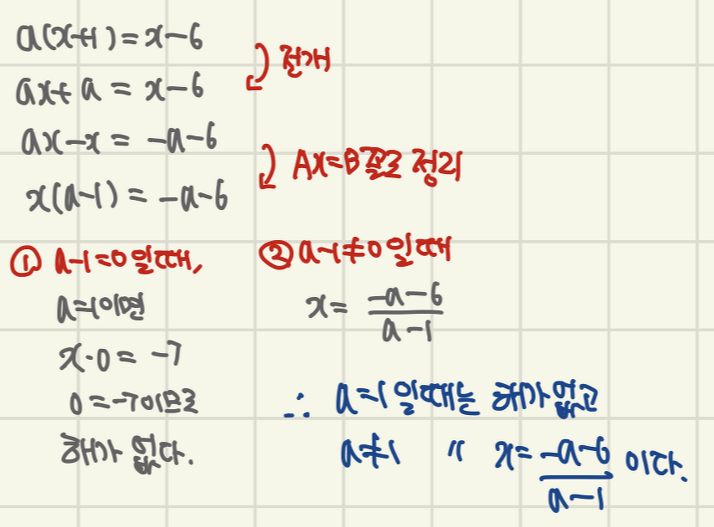 a(x+1)=x-6
전개
ax+a = x-6
ax-x = -a-6
Ax=B꼴로 정리
x(a-1) = -a-6
① a-1=0일때,
a=1이면
x·0 = -7
0=-7이므로
해가 없다.
② a-1≠0일때
x = \frac{-a-6}{a-1}
∴ a=1일때는 해가없고
a≠1 〃 x = \frac{-a-6}{a-1} 이다.